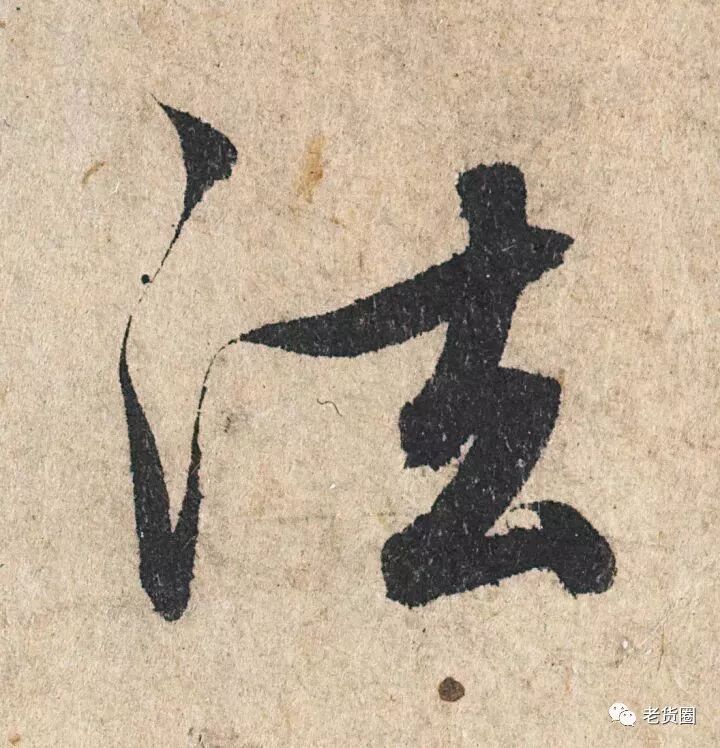 法
老货圈